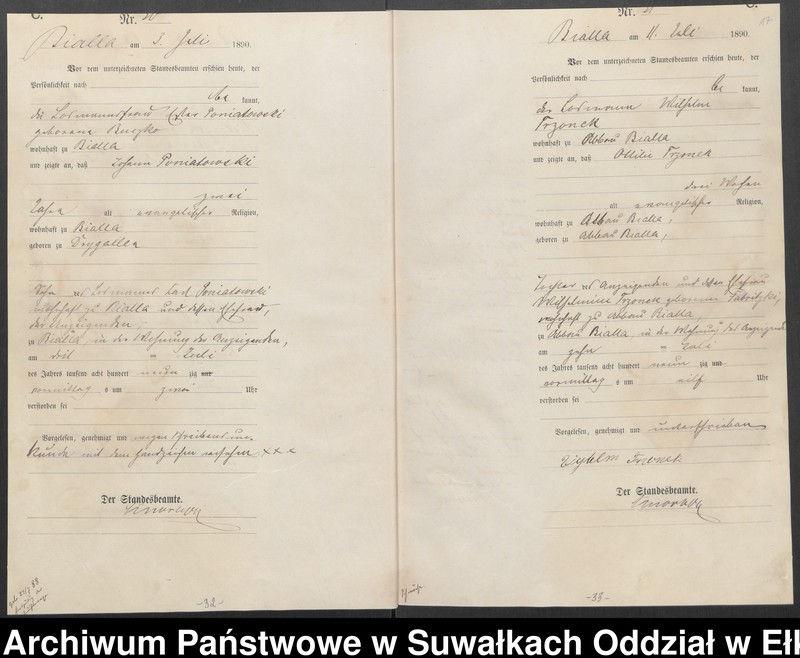 C.
Nr. 30
Bialla am 3. Juli 1890.
Vor dem unterzeichneten Standesbeamten erschien heute, der
Persönlichkeit nach
be kannt,
die Losmannsfrau Ester Poniatowski
geborene Buczko
wohnhaft zu Bialla
und zeigte an, daß Johann Poniatowski
zwei
Jahre alt evangelischer Religion,
wohnhaft zu Bialla
geboren zu Drygallen
Sohn des Losmannes Carl Poniatowski
wohnhaft zu Bialla und dessen Ehefrau,
der Anzeigenden,
zu Bialla, in der Wohnung der Anzeigenden,
am drei " Juli
des Jahres tausend acht hundert neun zig
vormittag s um zwei Uhr
verstorben sei
Vorgelesen, genehmigt und wegen Schreibensun-
kunde mit dem Handzeichen versehen x x x
Der Standesbeamte.
-32-
C.
Nr. 31
Bialla am 11. Juli 1890.
Vor dem unterzeichneten Standesbeamten erschien heute, der
Persönlichkeit nach
be kannt,
der Losmann Wilhelm
Trzonek
wohnhaft zu Abbau Bialla
und zeigte an, daß Ottilie Trzonek
drei Wochen
alt evangelischer Religion,
wohnhaft zu Abbau Bialla,
geboren zu Abbau Bialla,
Tochter des Anzeigenden und dessen Ehefrau
Wilhelmine Trzonek geborenen
wohnhaft zu Abbau Bialla,
zu Abbau Bialla, in der Wohnung des Anzeigenden
am zehn " Juli
des Jahres tausend acht hundert neun zig
vormittag s um elf Uhr
verstorben sei
Vorgelesen, genehmigt und unterschrieben
Wilhelm Trzonek
Der Standesbeamte.
-33-
Archiwum Państwowe w Suwałkach Oddział w Ełk